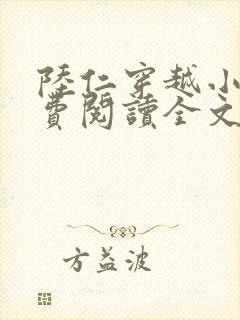 陸仁穿越小
費閱讀全文
方益波